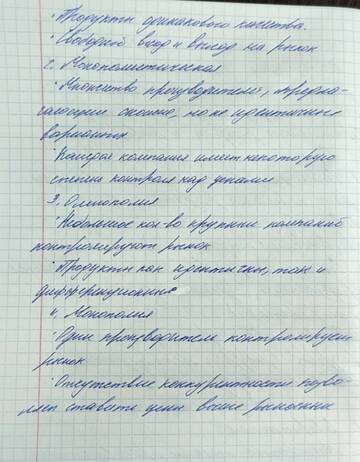 · Продукты одинакового качества.
· Свободный вход и выход на рынок
2. Монополистическая
· Множество производителей, предла-
гающих схожие, но не идентичные
варианты
· Каждая компания имеет некоторую
степень контроля над ценами
3. Олигополия
· Небольшое кол-во крупных компаний
контролируют рынок
· Продукты как идентичны, так и
4. Монополия
· Один производитель контролирует
рынок
· Отсутствие конкурентности позво-
ляет ставить цены выше рыночных